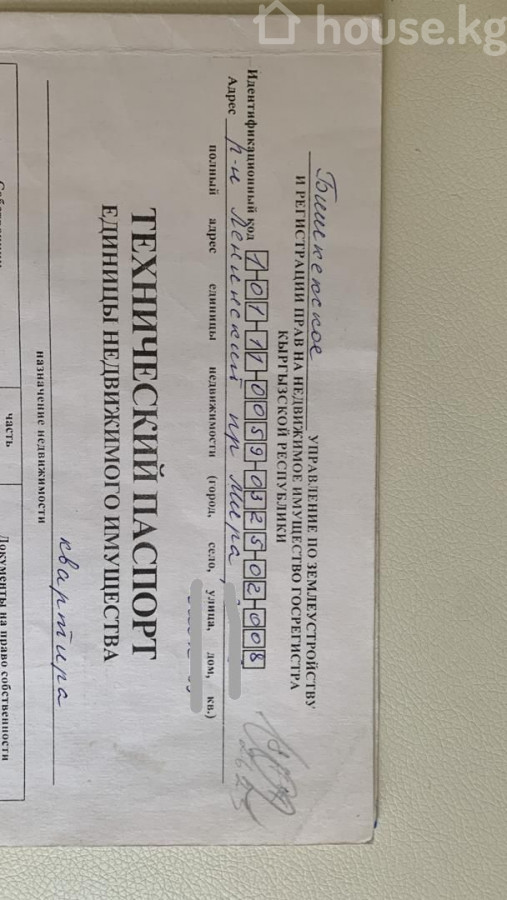 house.kg
Бишкекское УПРАВЛЕНИЕ ПО ЗЕМЛЕУСТРОЙСТВУ
И РЕГИСТРАЦИИ ПРАВ НА НЕДВИЖИМОЕ ИМУЩЕСТВО ГОСРЕГИСТРА
КЫРГЫЗСКОЙ РЕСПУБЛИКИ
Идентификационный код 1-01-11-0059-0325-02-008
Адрес р-н Ленинский пр Мира,
полный адрес единицы недвижимости (город, село, улица, дом, кв.)
ТЕХНИЧЕСКИЙ ПАСПОРТ
ЕДИНИЦЫ НЕДВИЖИМОГО ИМУЩЕСТВА
квартира
назначение недвижимости
часть
Документы на право собственности